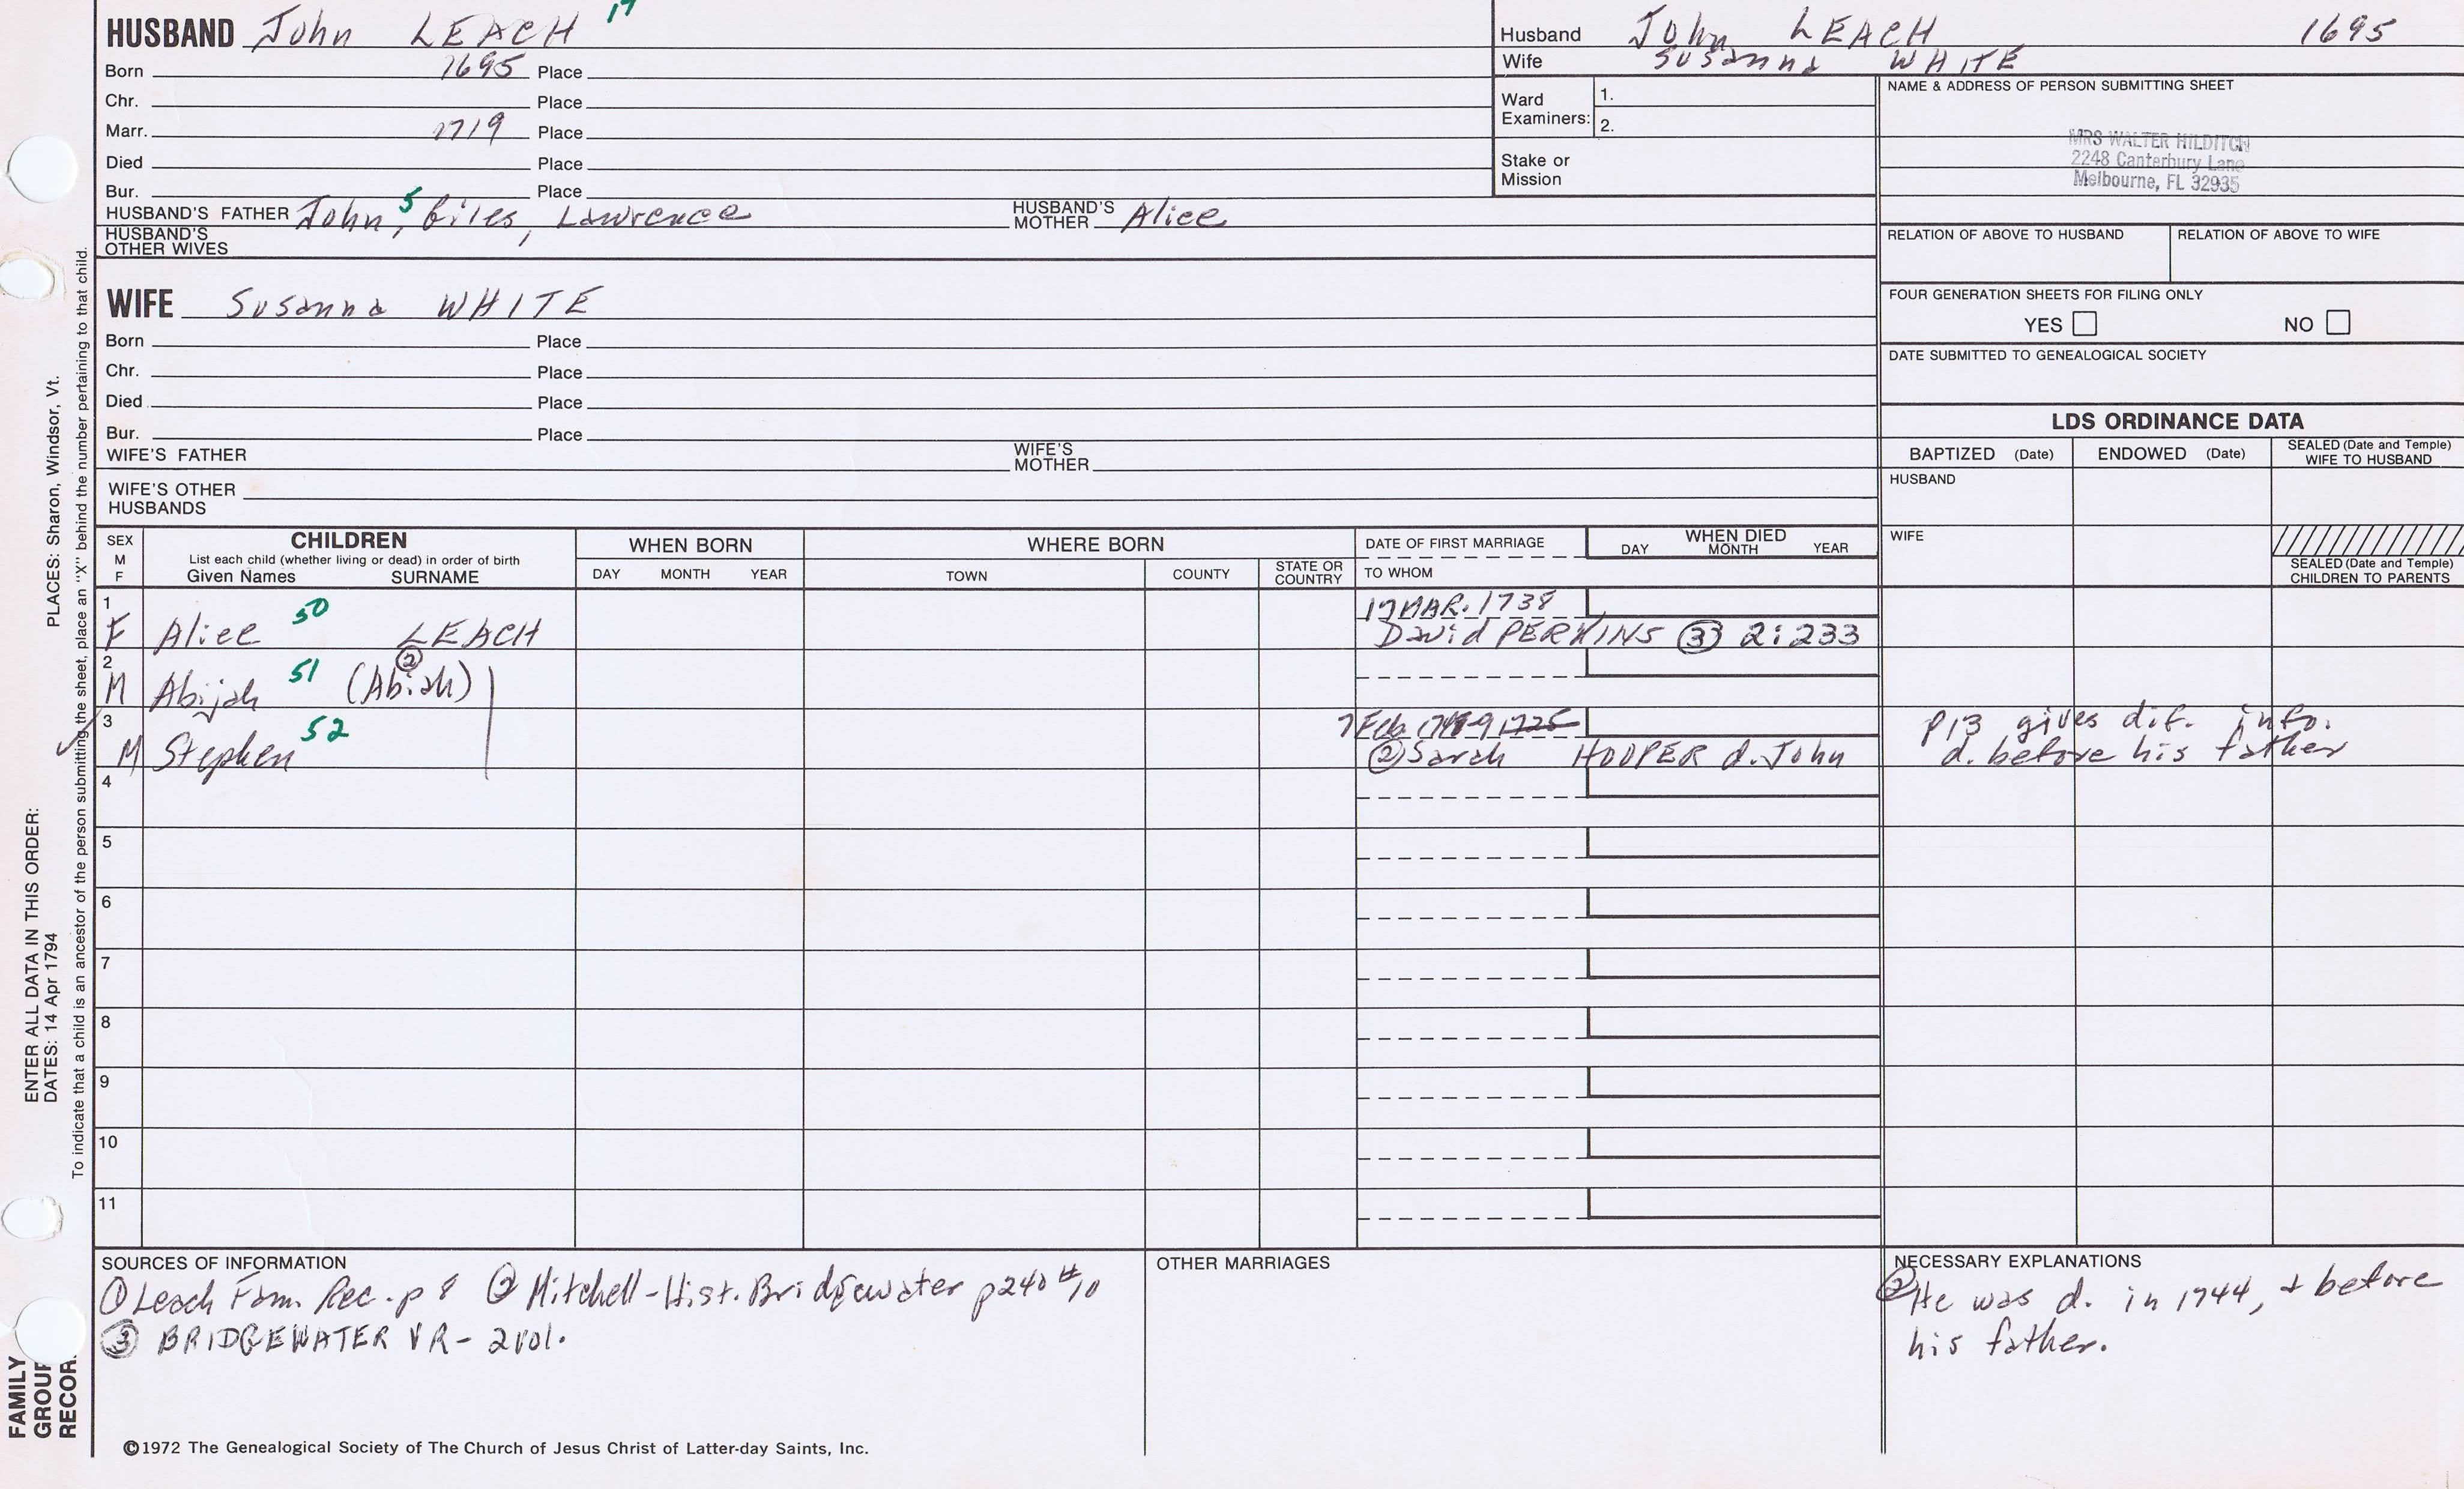 HUSBAND John LEACH 17
Born 1695 Place
Chr. Place
Marr. 1719 Place
Died Place
Bur. Place
HUSBAND'S FATHER John,5 Giles, Lawrence HUSBAND'S MOTHER Alice
HUSBAND'S OTHER WIVES
Husband John LEACH 1695
Wife Susanna WHITE
Ward Examiners: 1.
2.
Stake or Mission
NAME & ADDRESS OF PERSON SUBMITTING SHEET
MRS WALTER HILDITCH
2248 Canterbury Lane
Melbourne, FL 32935
RELATION OF ABOVE TO HUSBAND RELATION OF ABOVE TO WIFE
FOUR GENERATION SHEETS FOR FILING ONLY
YES NO
DATE SUBMITTED TO GENEALOGICAL SOCIETY
WIFE Susanna WHITE
Born Place
Chr. Place
Died Place
Bur. Place
WIFE'S FATHER WIFE'S MOTHER
WIFE'S OTHER HUSBANDS
LDS ORDINANCE DATA
BAPTIZED (Date) ENDOWED (Date) SEALED (Date and Temple) WIFE TO HUSBAND
HUSBAND
WIFE
SEALED (Date and Temple) CHILDREN TO PARENTS
SEX M F
CHILDREN
List each child (whether living or dead) in order of birth
Given Names SURNAME
WHEN BORN
DAY MONTH YEAR
WHERE BORN
TOWN COUNTY STATE OR COUNTRY
DATE OF FIRST MARRIAGE
TO WHOM
WHEN DIED
DAY MONTH YEAR
1 17 MAR. 1738
F Alice 50 LEACH David PERKINS ③ 2:233
2 ②
M Abijah 51 (Abiah)
3 7 Feb 1725
M Stephen 52 ② Sarah HOOPER d. John
p13 gives dif. info.
d. before his father
4
5
6
7
8
9
10
11
SOURCES OF INFORMATION
① Leach Fam. Rec. p 8 ② Mitchell-Hist. Bridgewater p240 #10
③ BRIDGEWATER VR - 2 vol.
OTHER MARRIAGES
NECESSARY EXPLANATIONS
② He was d. in 1744, & before
his father.
©1972 The Genealogical Society of The Church of Jesus Christ of Latter-day Saints, Inc.
ENTER ALL DATA IN THIS ORDER:
DATES: 14 Apr 1794 PLACES: Sharon, Windsor, Vt.
To indicate that a child is an ancestor of the person submitting the sheet, place an "X" behind the number pertaining to that child.
FAMILY
GROUP
RECOR